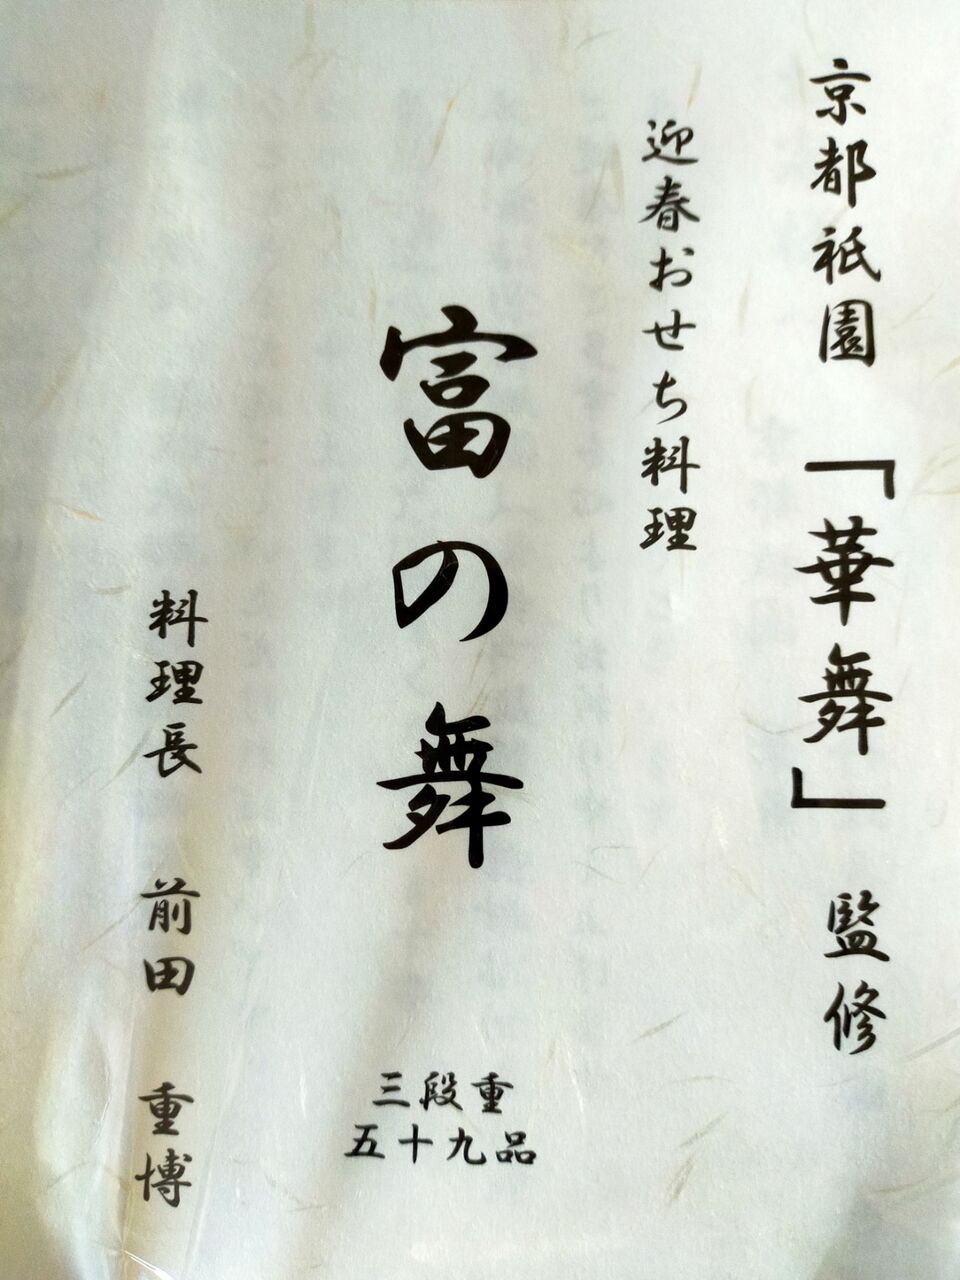 京都祇園「華舞」監修
迎春おせち料理
富の舞
三段重
五十九品
料理長 前田 重博